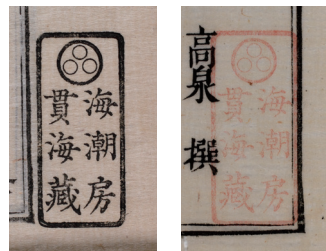 海潮房
貫海藏
高泉 撰
海潮房
貫海藏